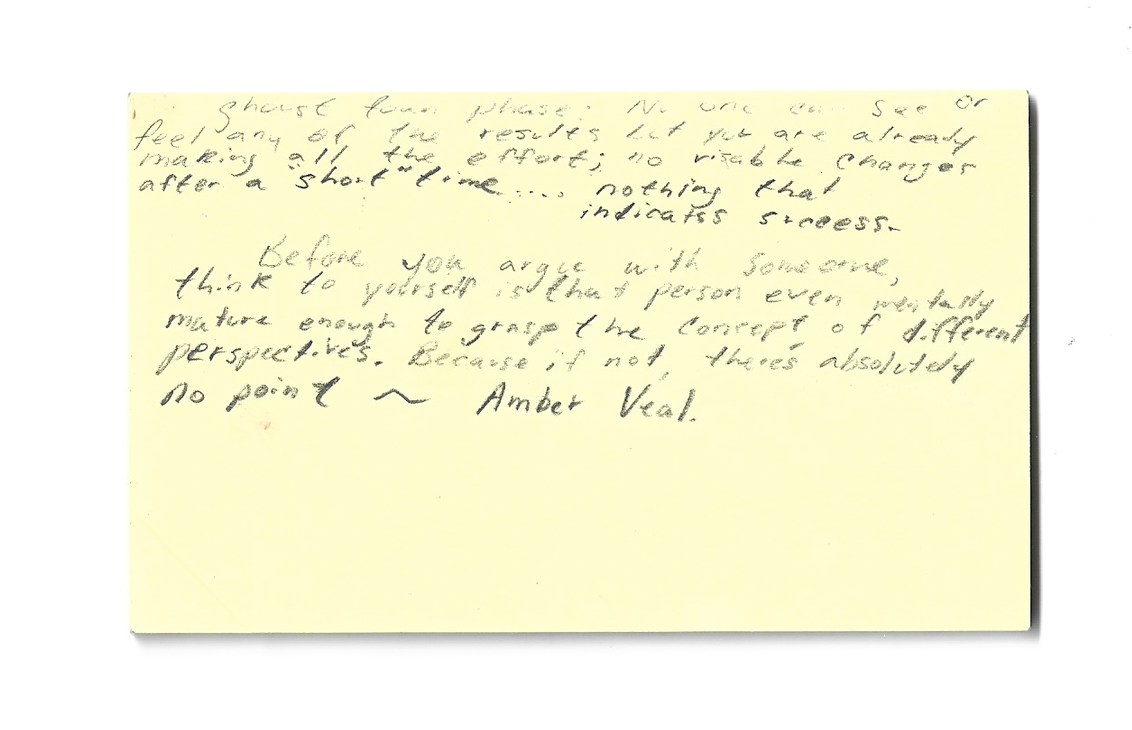 Ghoust town phase: No one can see or
feel any of the results but you are already
making all the effort; no visable changes
after a "short" time.... nothing that
indicates success.
Before you argue with someone,
think to yourself is that person even mentally
mature enough to grasp the concept of different
perspectives. Because if not, there's absolutely
no point ~ Amber Veal.